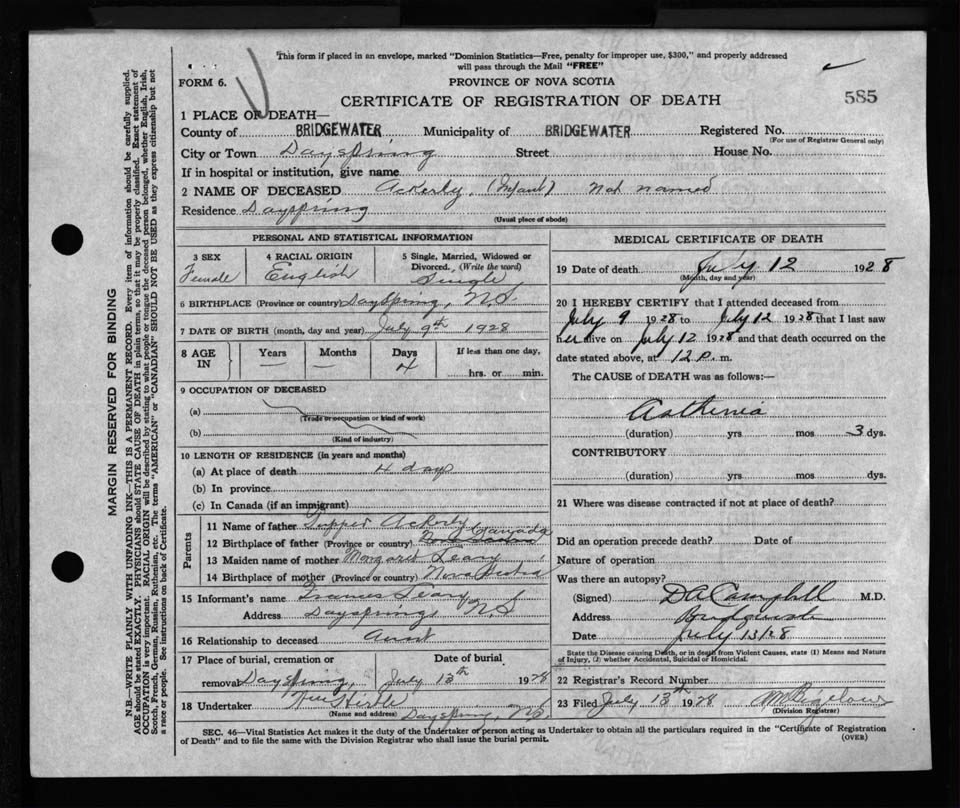 This form if placed in an envelope, marked "Dominion Statistics—Free, penalty for improper use, $300," and properly addressed
will pass through the Mail "FREE"
FORM 6.
PROVINCE OF NOVA SCOTIA
CERTIFICATE OF REGISTRATION OF DEATH
585
1 PLACE OF DEATH—
County of BRIDGEWATER Municipality of BRIDGEWATER Registered No.
(For use of Registrar General only)
City or Town Dayspring Street House No.
If in hospital or institution, give name
2 NAME OF DECEASED Ackerly, (Infant) Not named
Residence Dayspring
(Usual place of abode)
PERSONAL AND STATISTICAL INFORMATION
3 SEX 4 RACIAL ORIGIN 5 Single, Married, Widowed or
Divorced. (Write the word)
Female English Single
6 BIRTHPLACE (Province or country) Dayspring, N.S.
7 DATE OF BIRTH (month, day and year) July 9th 1928
8 AGE IN Years Months Days If less than one day,
— — 4 hrs. or min.
9 OCCUPATION OF DECEASED
(a)
(Trade or occupation or kind of work)
(b)
(Kind of industry)
10 LENGTH OF RESIDENCE (in years and months)
(a) At place of death 4 days
(b) In province
(c) In Canada (if an immigrant)
Parents
11 Name of father Tupper Ackerly
12 Birthplace of father (Province or country) Canada
13 Maiden name of mother Margaret Leary
14 Birthplace of mother (Province or country) Nova Scotia
15 Informant's name Frances Leary
Address Dayspring, N.S
16 Relationship to deceased Aunt
17 Place of burial, cremation or Date of burial
removal Dayspring, July 13th 1928
18 Undertaker
(Name and address) Dayspring, N.S.
MEDICAL CERTIFICATE OF DEATH
19 Date of death July 12 1928
(Month, day and year)
20 I HEREBY CERTIFY that I attended deceased from
July 9 1928 to July 12 1928 that I last saw
her alive on July 12 1928 and that death occurred on the
date stated above, at 12 p. m.
The CAUSE of DEATH was as follows:—
Asthenia
(duration) yrs mos 3 dys.
CONTRIBUTORY
(duration) yrs mos dys.
21 Where was disease contracted if not at place of death?
Did an operation precede death? Date of
Nature of operation
Was there an autopsy?
(Signed) DA Campbell M.D.
Address
Date July 13/28
State the Disease causing Death, or in death from Violent Causes, state (1) Means and Nature
of Injury, (2) whether Accidental, Suicidal or Homicidal.
22 Registrar's Record Number
23 Filed July 13th 1928
(Division Registrar)
SEC. 46—Vital Statistics Act makes it the duty of the Undertaker or person acting as Undertaker to obtain all the particulars required in the "Certificate of Registration
of Death" and to file the same with the Division Registrar who shall issue the burial permit.
(OVER)
MARGIN RESERVED FOR BINDING
N.B.—WRITE PLAINLY WITH UNFADING INK—THIS IS A PERMANENT RECORD. Every item of information should be carefully supplied.
AGE should be stated EXACTLY. PHYSICIANS should STATE CAUSE OF DEATH in plain terms, so that it may be properly classified. Exact statement of
OCCUPATION is very important. RACIAL ORIGIN will be described by stating to what people or tongue the deceased person belonged, whether English, Irish,
Scotch, French, German, Russian, Ruthenian, etc. The terms "AMERICAN" or "CANADIAN" SHOULD NOT BE USED as they express citizenship but not
a race or people. See instructions on back of Certificate.